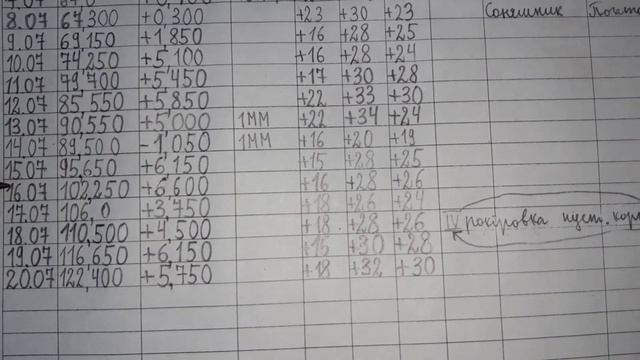 8.07 67,300 +0,300 +23 +30 +23 Соняшник
9.07 69,150 +1'850 +16 +28 +25
10.07 74'250 +5'100 +16 +28 +24
11.07 79,700 +5'450 +17 +30 +28
12.07 85,550 +5'850 +22 +33 +30
13.07 90,550 +5'000 1ММ +22 +34 +24
14.07 89,500 -1'050 1ММ +16 +20 +19
15.07 95,650 +6'150 +15 +28 +25
16.07 102,250 +6,600 +16 +28 +26
17.07 106,0 +3,750 +18 +26 +24
18.07 110,500 +4,500 +18 +28 +26 IV рокіровка пуст. кор
19.07 116,650 +6,150 +15 +30 +28
20.07 122'400 +5,750 +18 +32 +30